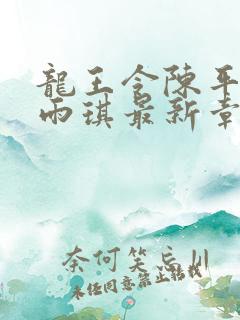 龍王令陳平
雨琪最新章
奈何笑忘川
未经同意禁止转载